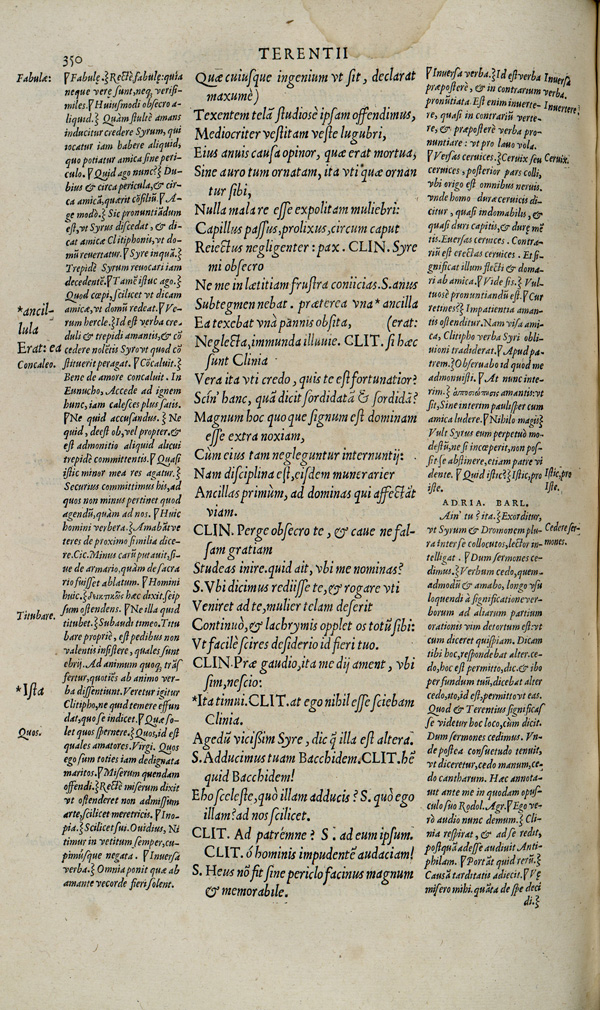 350
TERENTII
Fabulæ:
*ancil-
lula
Erat: ea
Concaleo.
Titubare.
*Ista
Quos.
ꝩFabulę.ꝫRectè fabulę: quia
neque verę sunt, neq; verisi-
miles.ꝩHuiusmodi obsecro a-
liquid.ꝫ Quàm stultè amans
inducitur credere Syrum, qui
iocatur iam habere aliquid,
quo potiatur amica sine peri-
culo.ꝩQuid ago nunc?ꝫ Du-
bius & circa pericula, & cir-
ca amicā, quærit cōsiliū.ꝩ A-
ge modò.ꝫ Sic pronuntiādum
est, vt Syrus discedat, & di-
cat amicæ Clitiphonis, vt do-
mū reuertatur.ꝩSyre inquā.ꝫ
Trepidè Syrum reuocat iam
decedentē.ꝩTamē istuc ago.ꝫ
Quod cœpi, scilicet vt dicam
amicæ, vt domū redeat.ꝩVe-
rum hercle.ꝫ Id est verba cre-
duli & trepidi amantis, & cō
cedere nolētis Syro vt quod cō
stituerit peragat. ꝩCōcaluit.ꝫ
Bene de amore concaluit. In
Eunucho, Accede ad ignem
hunc, iam calesces plus satis.
ꝩNe quid accusandus. ꝫ Ne
quid, deest ob, vel propter: &
est admonitio aliquid alicui
trepidè committentis. ꝩQuasi
istic minor mea res agatur.ꝫ
Securius committimus his, ad
quos non minus pertinet quod
agendū, quàm ad nos. ꝩ Huic
homini verbera.ꝫAmabāt ve
teres de proximo similia dice-
re. Cic. Minus carū putauit, si-
ue de armario, quàm de sacra
rio fuisset ablatum. ꝩHomini
huic.ꝫ hæc dixit, seip
sum ostendens. ꝩNe illa quid
titubet.ꝫ Subaudi timeo. Titu
bare propriè, est pedibus non
valentis insistere, quales sunt
ebrij. Ad animum quoq; trās
fertur, quotiēs ab animo ver-
ba dissentiunt. Veretur igitur
Clitipho, ne quid temere effun
dat, quo se indicet. ꝩQuæ so-
let quos spernere.ꝫ Quos, id est
quales amatores. Virgi. Quos
ego sum toties iam dedignata
maritos. ꝩMiserum quendam
offendi.ꝫ Rectè miserum dixit
vt ostenderet non admissum
arte, scilicet meretricis. ꝩIno-
pia.ꝫ Scilicet sua. Ouidius, Ni
timur in vetitum semper, cu-
pimúsque negata. ꝩInuersa
verba.ꝫ Omnia ponit quæ ab
amante vecorde fieri solent.
Quæ cuiusque ingenium vt sit, declarat
maxumè)
Texentem telā studiosè ipsam offendimus,
Mediocriter vestitam veste lugubri,
Eius anuis causa opinor, quæ erat mortua,
Sine auro tum ornatam, ita vti quæ ornan
tur sibi,
Nulla mala re esse expolitam muliebri:
Capillus passus, prolixus, circum caput
Reiectus negligenter: pax. CLIN. Syre
mi obsecro
Ne me in lætitiam frustra coniicias. S. anus
Subtegmen nebat. præterea vna* ancilla
Ea texebat vnà pannis obsita, (erat:
Neglecta, immunda illuuie. CLIT. si hæc
sunt Clinia
Vera ita vti credo, quis te est fortunatior?
Scin' hanc, quā dicit sordidatā & sordidā?
Magnum hoc quoque signum est dominam
esse extra noxiam,
Cùm eius tam negleguntur internuntij:
Nam disciplina est, eisdem munerarier
Ancillas primùm, ad dominas qui affectāt
viam.
CLIN. Perge obsecro te, & caue ne fal-
sam gratiam
Studeas inire. quid ait, vbi me nominas?
S. Vbi dicimus rediisse te, & rogare vti
Veniret ad te, mulier telam deserit
Continuò, & lachrymis opplet os totū sibi:
Vt facilè scires desiderio id fieri tuo.
CLIN. Præ gaudio, ita me dij ament, vbi
sim, nescio:
*Ita timui. CLIT. at ego nihil esse sciebam
Clinia.
Agedū vicissim Syre, dic q̃ illa est altera.
S. Adducimus tuam Bacchidem. CLIT. hē
quid Bacchidem!
Eho sceleste, quò illam adducis? S. quò ego
illam? ad nos scilicet.
CLIT. Ad patrémne? S. ad eum ipsum.
CLIT. ô hominis impudentē audaciam!
S. Heus nō fit sine periclo facinus magnum
& memorabile.
ꝩInuersa verba.ꝫ Id est verba
præposterè, & in contrarium
pronūtiata. Est enim inuerte-
re, quasi in contrariū verte-
re, & præposterè verba pro-
nuntiare: vt pro lauo vola.
ꝩVersas ceruices.ꝫ Ceruix seu
ceruices, posterior pars colli,
vbi origo est omnibus neruis.
vnde homo duræ ceruicis di-
citur, quasi indomabilis, &
quasi duri capitis, & duræ mē
tis. Euersas ceruices. Contra-
riū est erectas ceruices. Et si-
gnificat illum flecti & doma-
ri ab amica. ꝩVide sis.ꝫ Vul-
tuosè pronuntiandū est. ꝩCur
retines?ꝫ Impatientia aman-
tis ostenditur. Nam visa ami-
ca, Clitipho verba Syri obli-
uioni tradiderat. ꝩApud pa-
trem.ꝫ Obseruabo id quod me
admonuisti. ꝩAt nunc inte-
rim.ꝫ amantis: vt
sit, Sine interim paulisper cum
amica ludere. ꝩNihilo magis
Vult Syrus eum perpetuò mo-
destiū, ne si inceperit, non pos-
sit se abstinere, etiam patre vi
dente. ꝩQuid istic?ꝫ Istic, pro
iste.
ADRIA. BARL.
Ain' tu? ita.ꝫ Exorditur,
vt Syrum & Dromonem plu-
ra inter se collocutos, lector in-
telligat. ꝩDum sermones ce-
dimus.ꝫ Verbum cedo, quem-
admodū & amabo, longo vsu
loquendi à significatione ver-
borum ad aliarum partium
orationis vim detortum est: vt
cum diceret quispiam. Dicam
tibi hoc, respondebat alter. ce-
do, hoc est permitto, dic. & ibo
per fundum tuū, dicebat alter
cedo, ato, id est, permitto vt eas.
Quod & Terentius significas
se videtur hoc loco, cùm dicit.
Dum sermones cedimus. Vn-
de postea consuetudo tenuit,
vt diceretur, cedo manum, ce-
do cantharum. Hæc annota-
uit ante me in quodam opus-
culo suo Rodol. Agr.ꝩ Ego ve-
rò audio nunc demum.ꝫ Cli-
nia respirat, & ad se redit,
postquā adesse audiuit Anti-
philam. ꝩPortāt quid rerū.ꝫ
Causā tarditatis adiecit. ꝩVę
misero mihi. quāta de spe deci
di.ꝫ
Inuersa
verba.
Inuertere.
Ceruix.
Istic, pro
Iste.
Cedere ser-
mones.